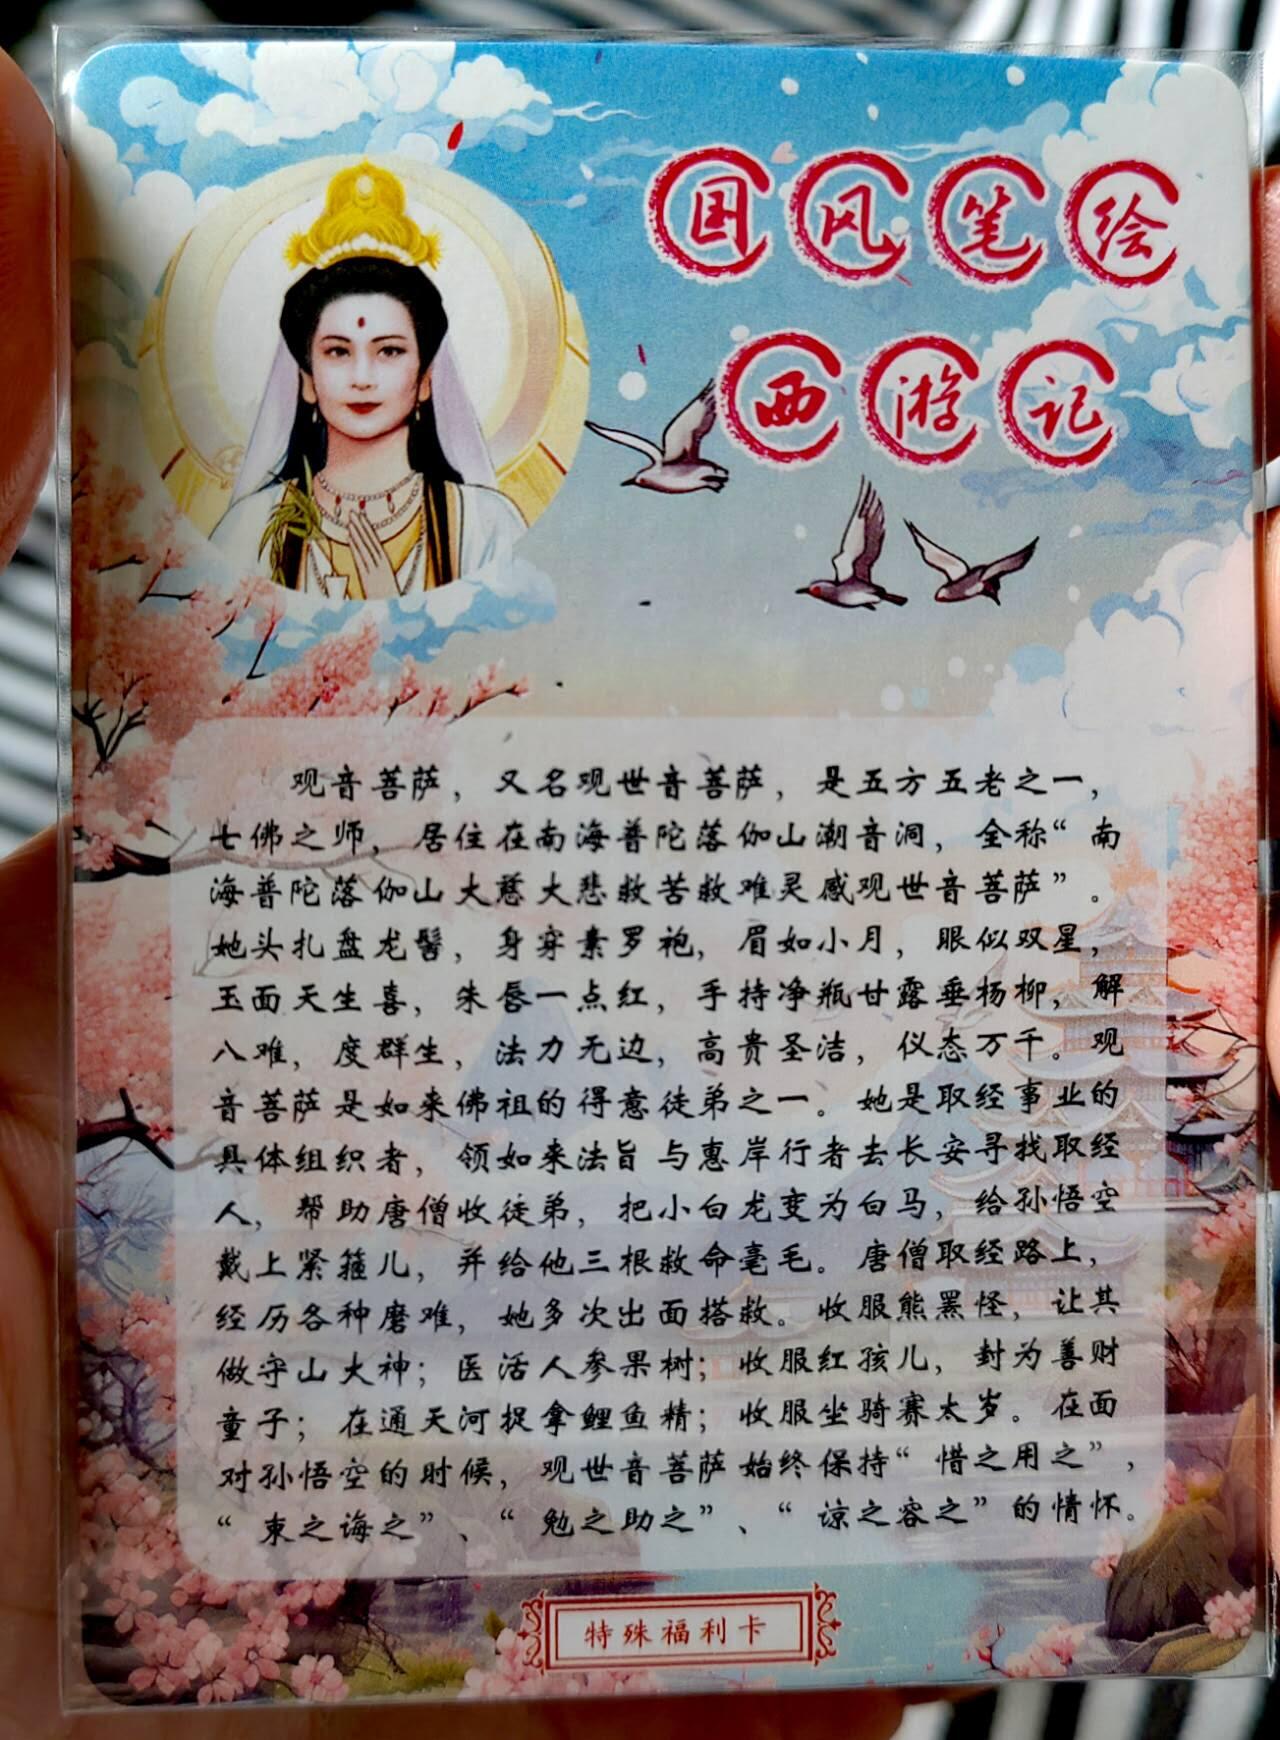 国风笔绘
西游记
观音菩萨，又名观世音菩萨，是五方五老之一，
七佛之师，居住在南海普陀落伽山潮音洞，全称“南
海普陀落伽山大慈大悲救苦救难灵感观世音菩萨”。
她头扎盘龙髻，身穿素罗袍，眉如小月，眼似双星，
玉面天生喜，朱唇一点红，手持净瓶甘露垂杨柳，解
八难，度群生，法力无边，高贵圣洁，仪态万千。观
音菩萨是如来佛祖的得意徒弟之一。她是取经事业的
具体组织者，领如来法旨与惠岸行者去长安寻找取经
人，帮助唐僧收徒弟，把小白龙变为白马，给孙悟空
戴上紧箍儿，并给他三根救命毫毛。唐僧取经路上，
经历各种磨难，她多次出面搭救。收服熊罴怪，让其
做守山大神；医活人参果树；收服红孩儿，封为善财
童子；在通天河捉拿鲤鱼精；收服坐骑赛太岁。在面
对孙悟空的时候，观世音菩萨始终保持“惜之用之”，
“束之诲之”、“勉之助之”、“谅之容之”的情怀。
特殊福利卡